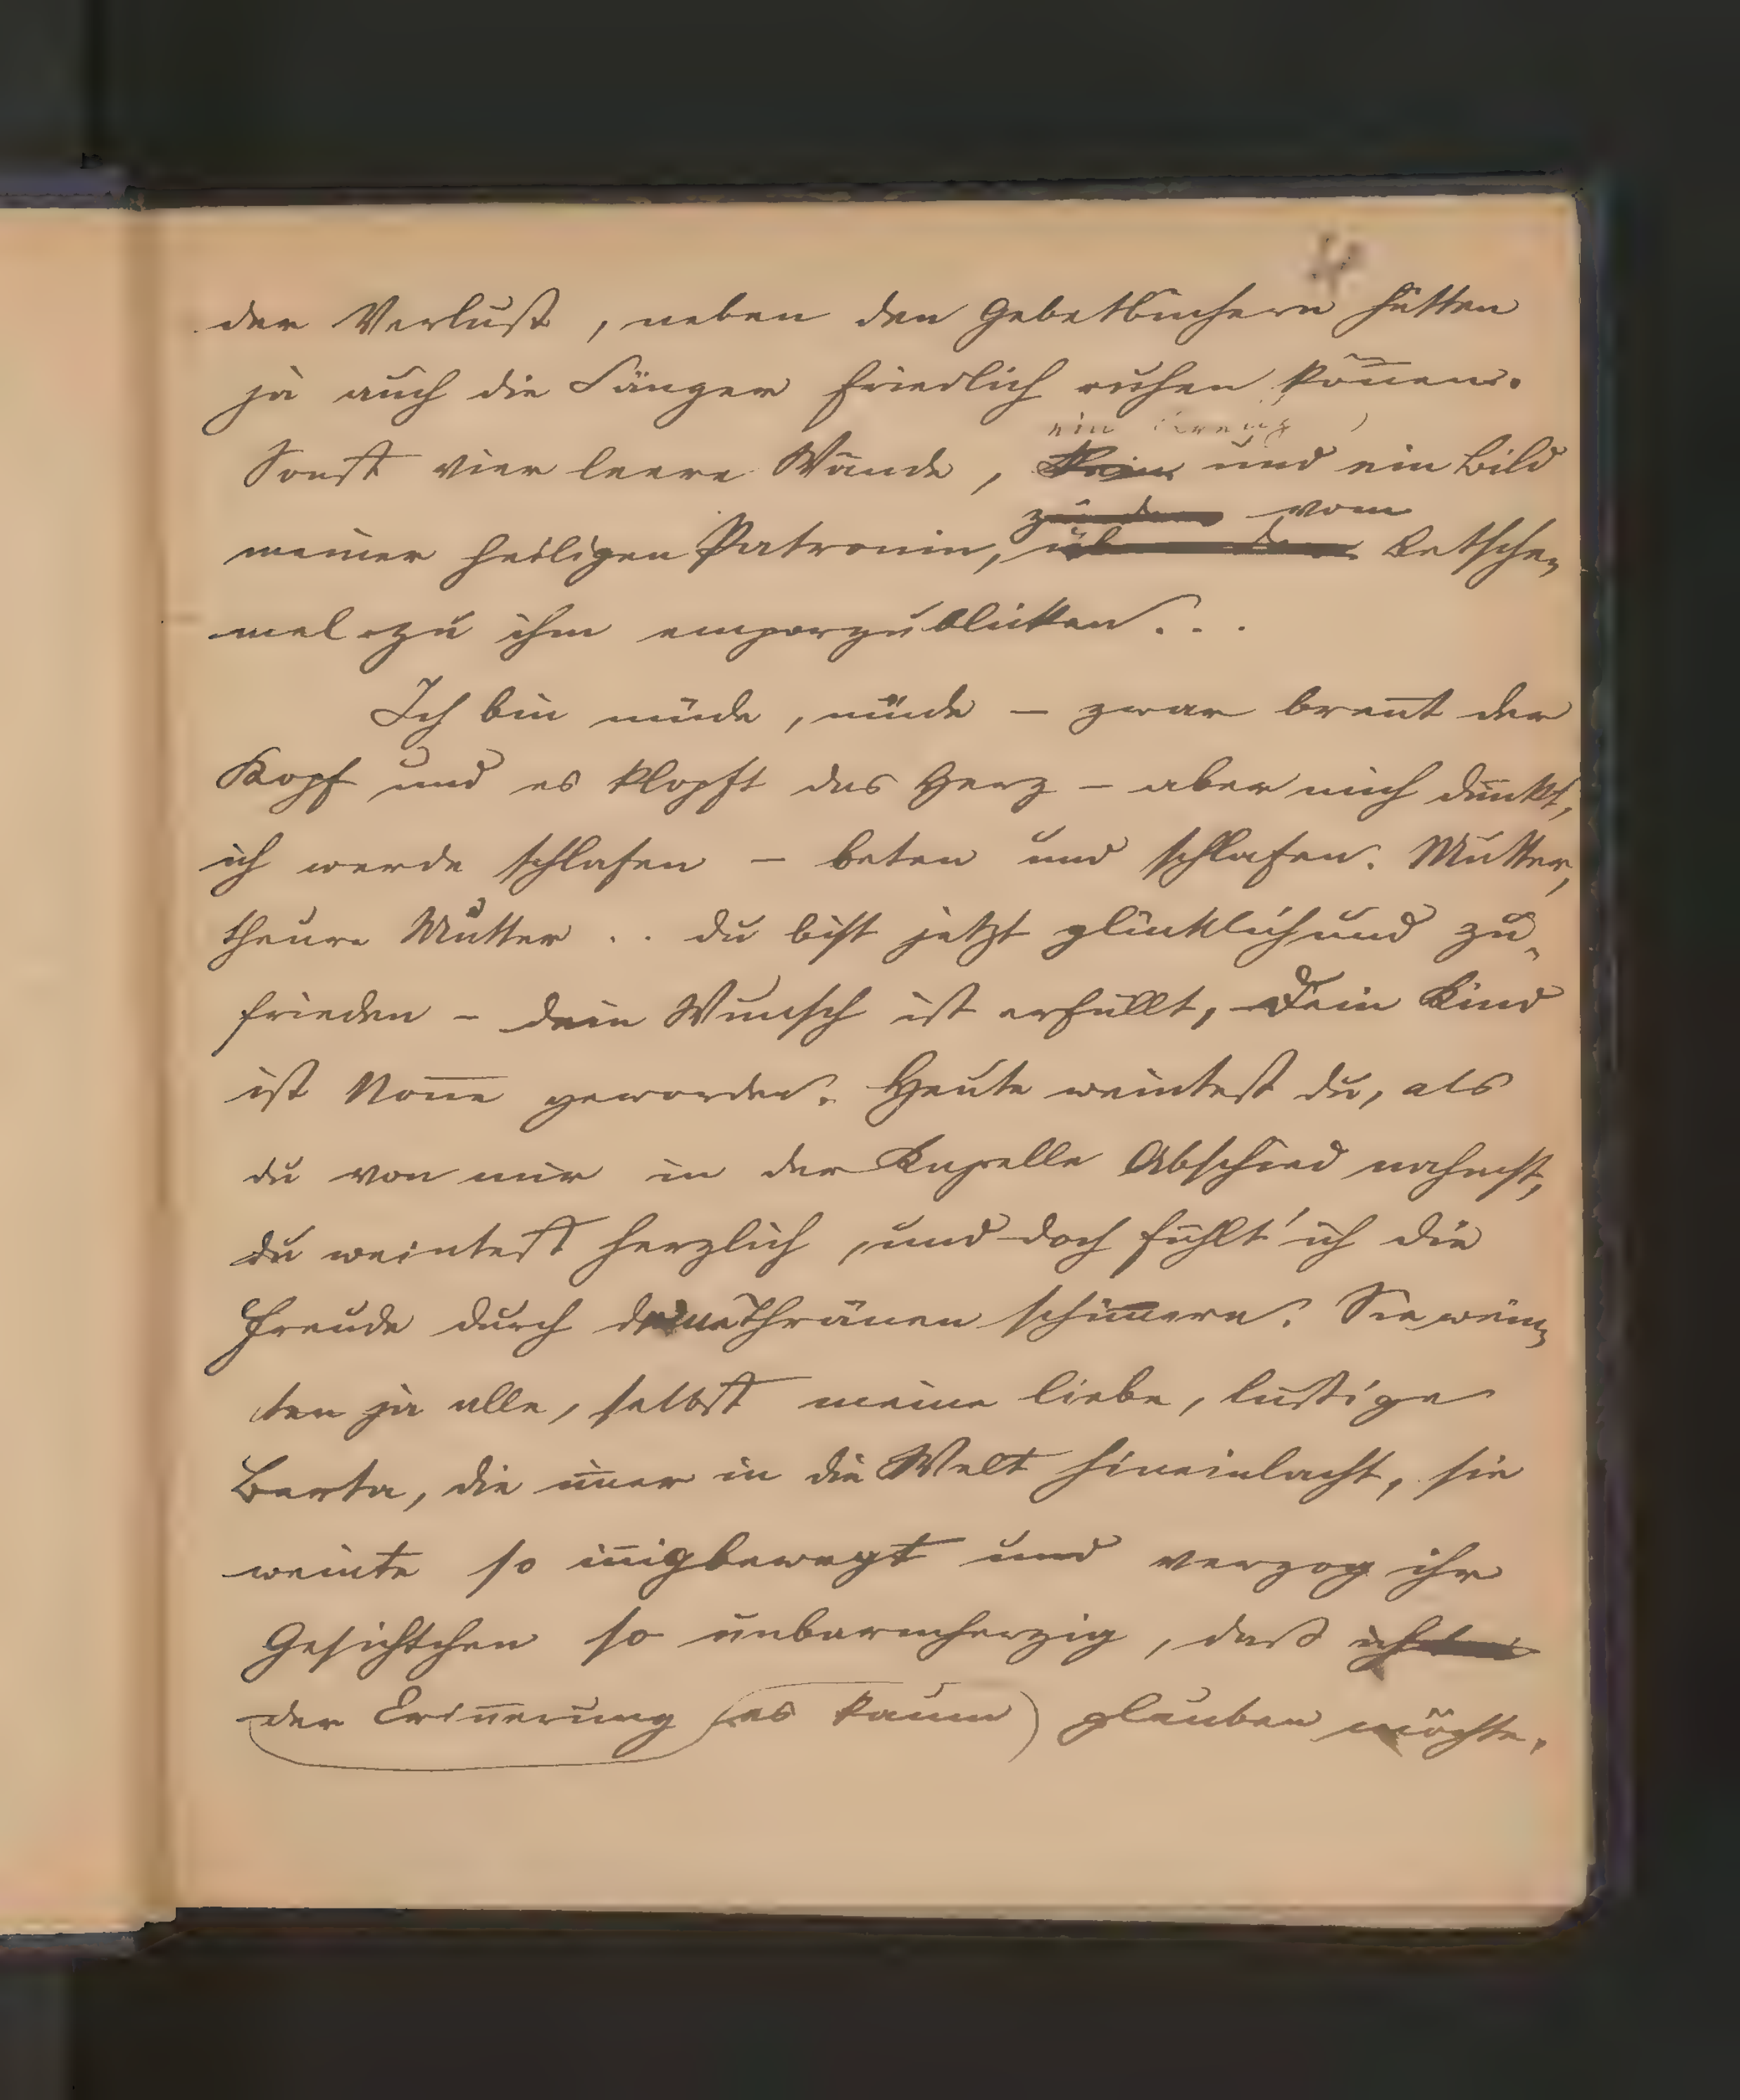 4.
der Verlust, neben den Gebetbüchern hätten
ja auch die Sänger friedlich ruhen kön̅en.
ein Kreuz
Sonst vier leere Wände, und ein Bild
zu dem vom
meiner heiligen Patronin, über dem Betsche-
mel zu ihm emporzublicken...
Ich bin müde, müde – zwar bren̅t der
Kopf und es klopft das Herz – aber mich dünkt,
ich werde schlafen – beten und schlafen. Mutter,
theure Mutter .. du bist jetzt glücklich und zu-
frieden – dein Wunsch ist erfüllt, Dein Kind
ist Non̅e geworden. Heute weintest du, als
du von mir in der Kapelle Abschied nahmst,
du weintest herzlich, und doch fühlt' ich die
Freude durch deine Thränen schim̅ern. Sie wein-
ten ja alle, selbst meine liebe, lustige
Berta, die im̅er in die Welt hineinlacht, sie
weinte so in̅igbewegt und verzog ihr
Gesichtchen so unbarmherzig, daß ich
der Erin̅erung (es kaum) glauben möchte.